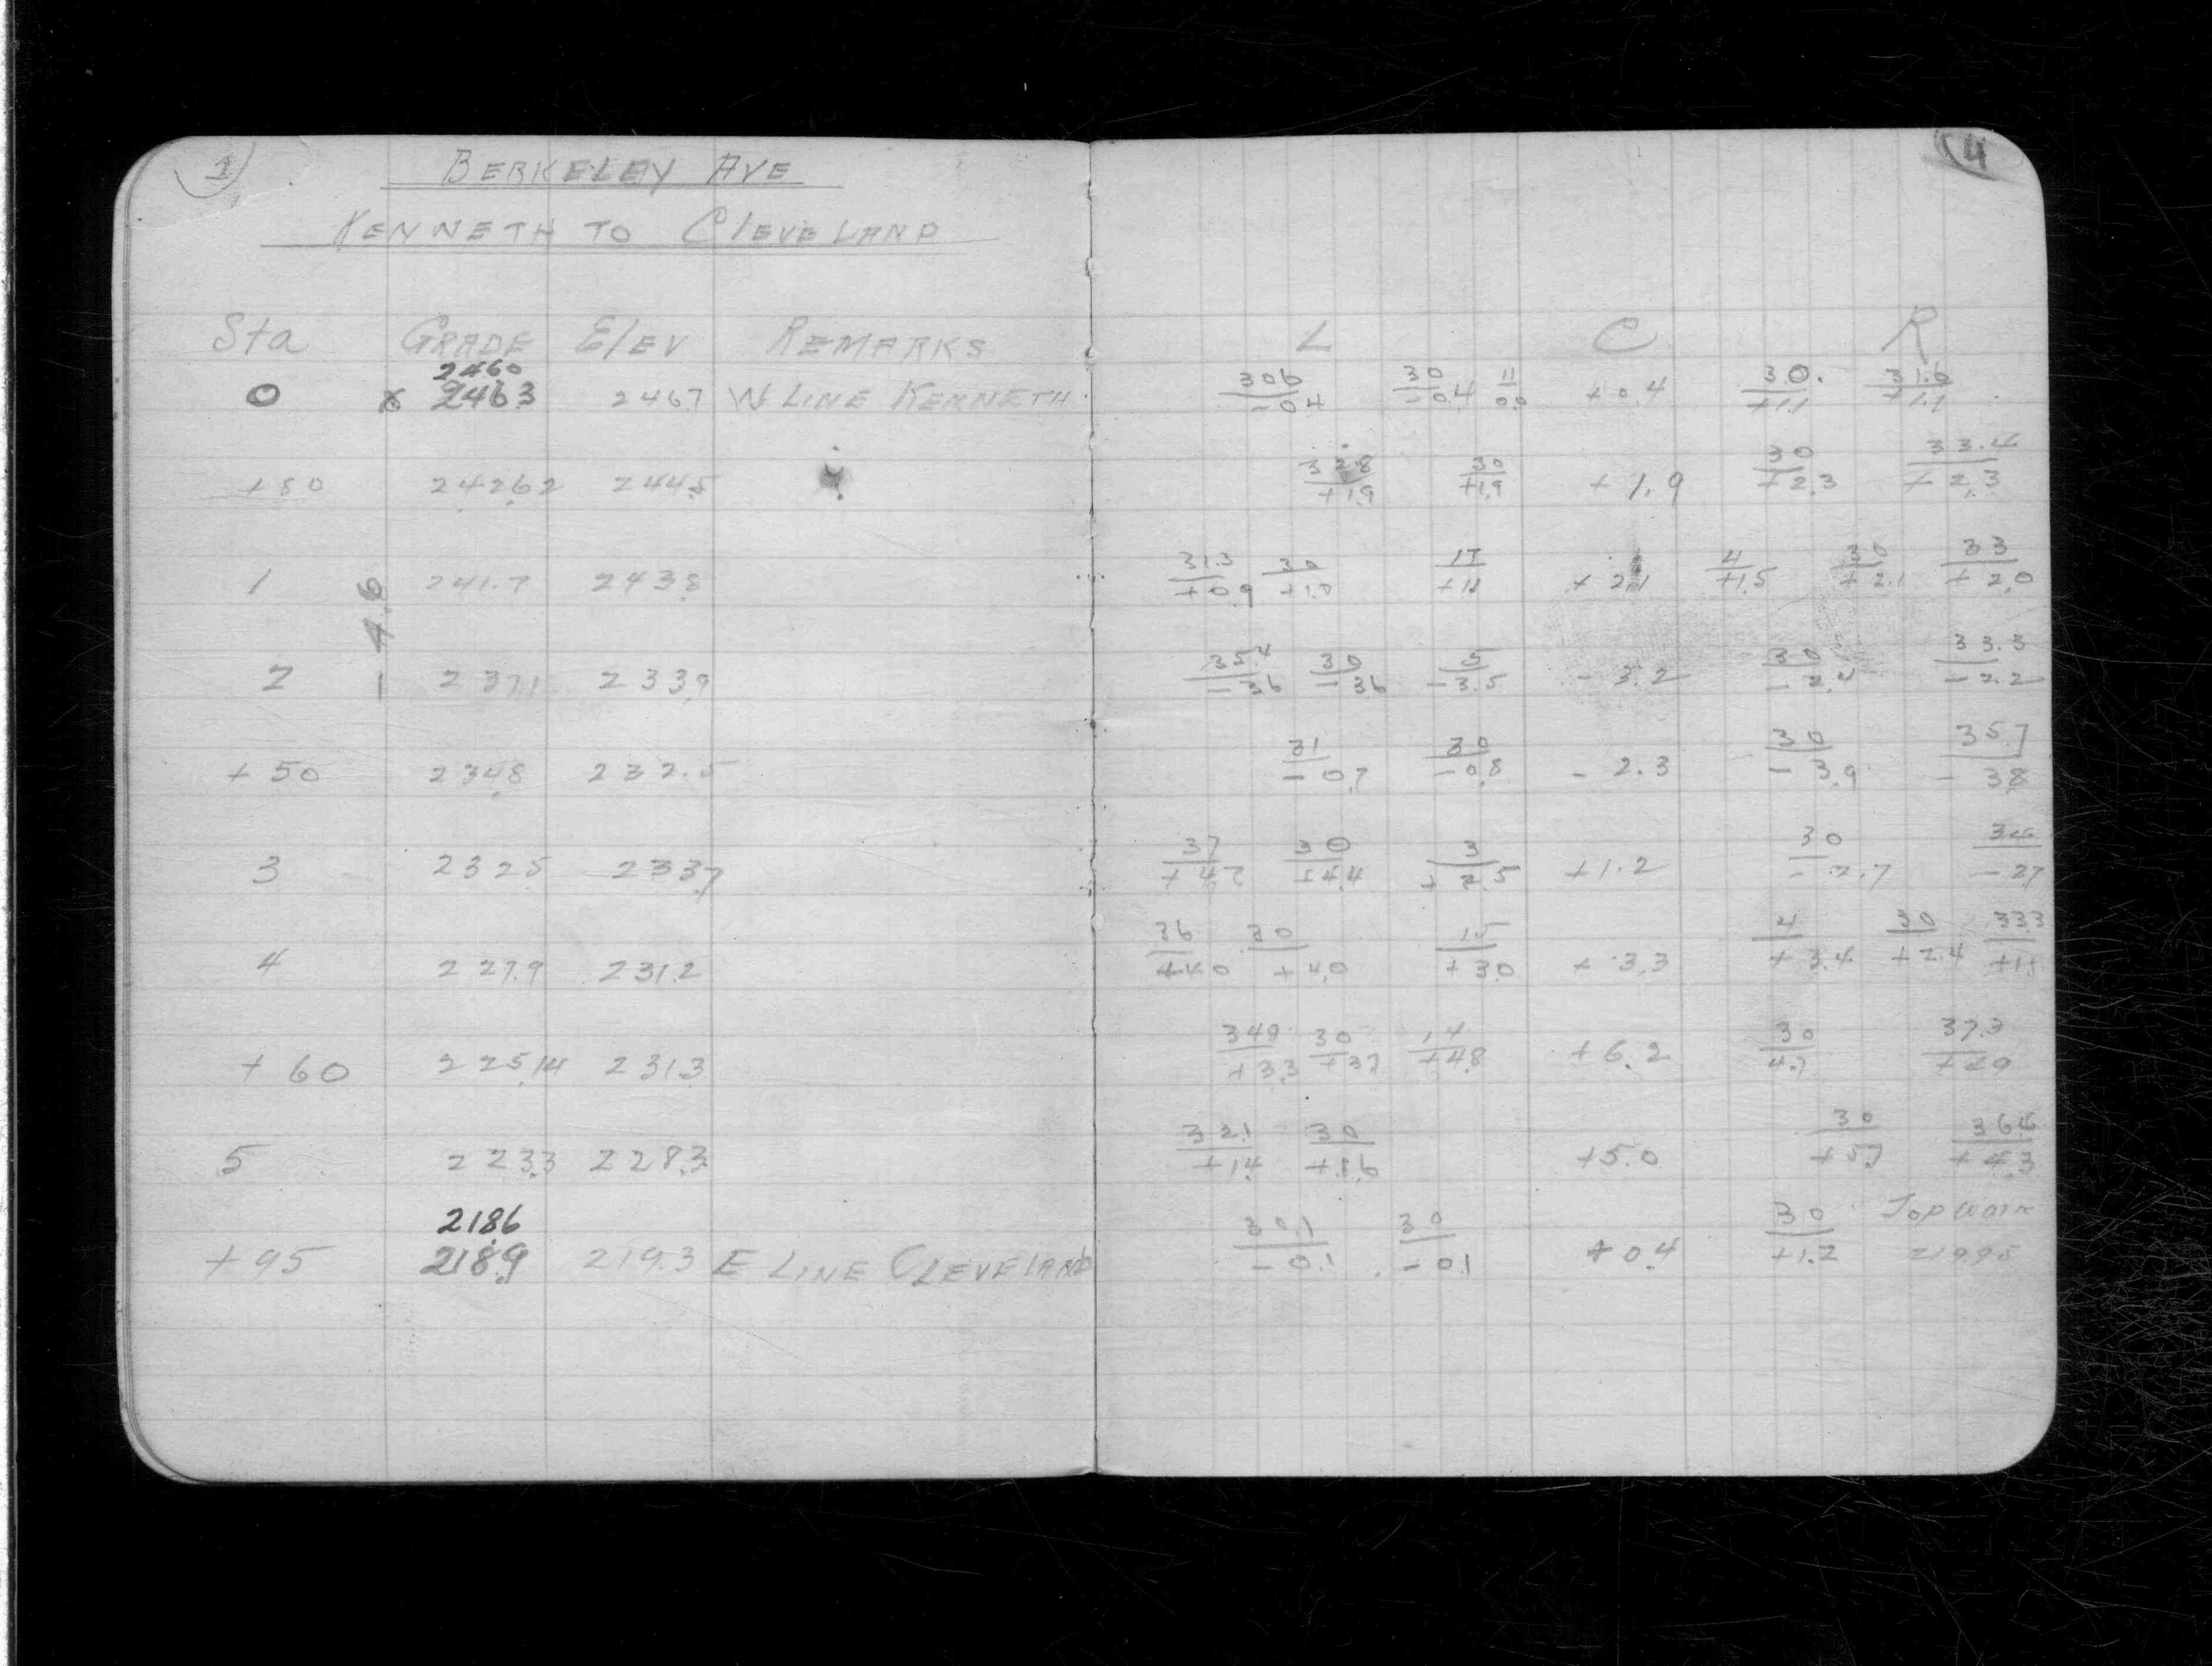 1
BERKELEY AVE
KENNETH TO CLEVELAND
Sta GRADE Elev REMARKS
2460
0 x 246.3 246.7 W LINE KENNETH
+80 242.62 244.5
1 241.7 243.8
- 4.6
2 237.1 233.9
+50 234.8 232.5
3 232.5 233.7
4 227.9 231.2
+60 225.14 231.3
5 223.3 228.3
218.6
+95 218.9 219.3 E LINE CLEVELAND
4
L C R
30.6/-0.4 30/-0.4 11/0.0 +0.4 30./+1.1 31.6/+1.1
32.8/+1.9 30/+1.9 +1.9 30/+2.3 33.4/+2.3
31.3/+0.9 30/+1.0 +2.1 4/+1.5 30/+2.1 33/+2.0
35.4/-3.6 30/-3.6 5/-3.5 -3.2 30/-2.4 33.3/-2.2
31/-0.7 30/-0.8 -2.3 30/-3.9 35.7/-3.8
37/+4.2 30/+4.4 3/+2.5 +1.2 30/-2.7 34/-2.7
36/+4.0 30/+4.0 15/+3.0 +3.3 4/+3.4 30/+2.4 333
349/+3.3 30/+3.7 14/+4.8 +6.2 30/4.7 37.3/+4.9
32.1/+1.4 30/+1.6 +5.0 30/+5.7 36.4/+4.3
30.1/-0.1 30/-0.1 +0.4 30/+1.2 Top walk
219.95